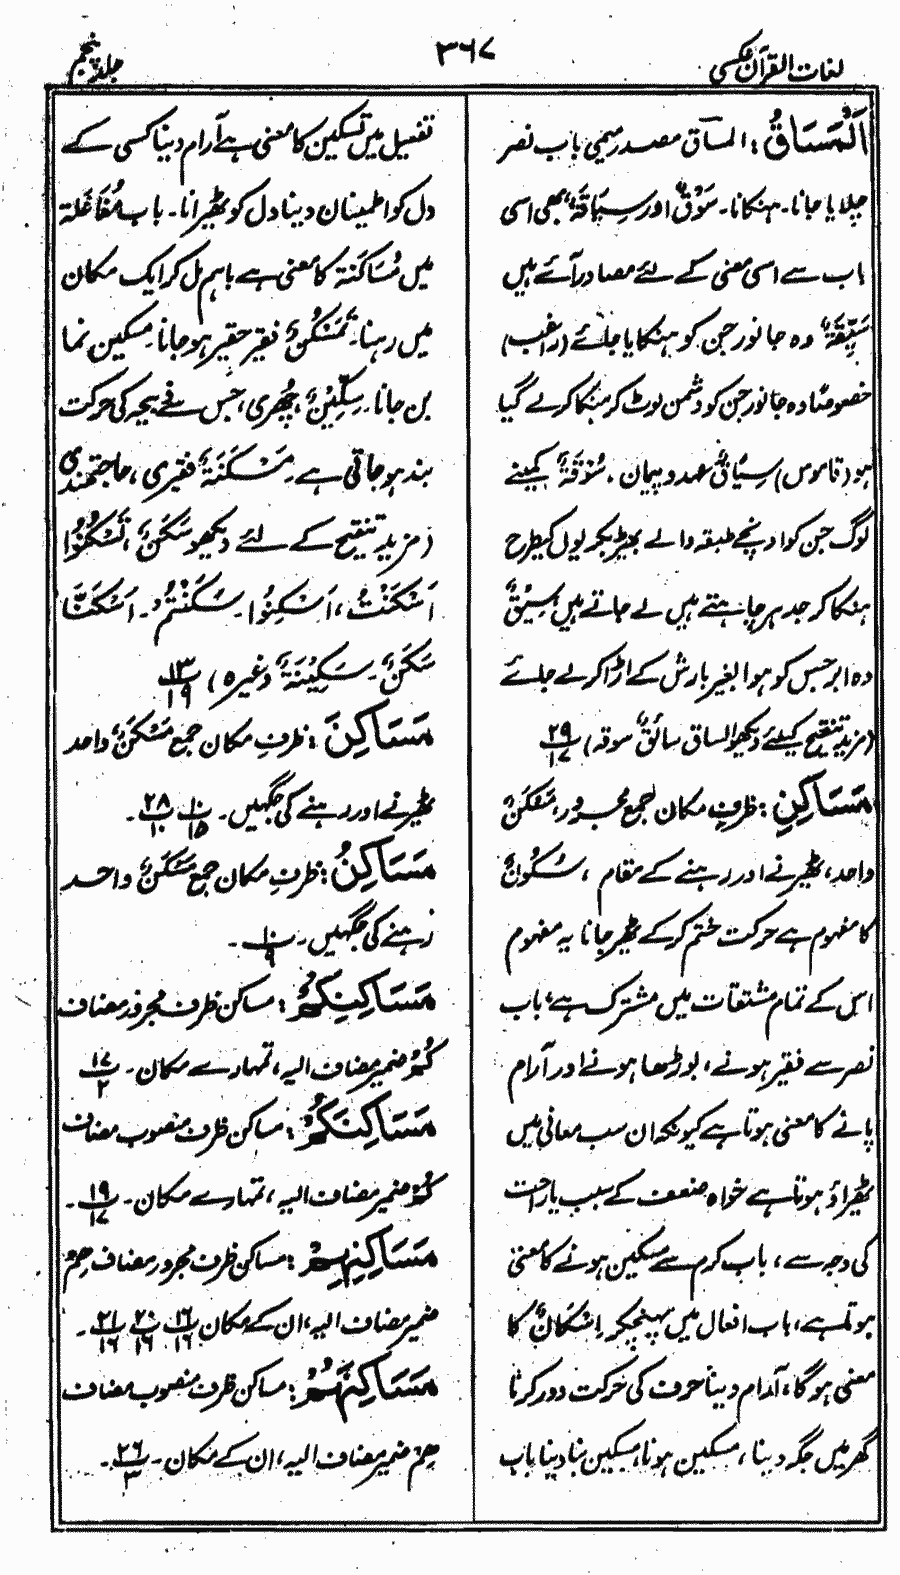 لغات القرآن عکسی
۳۶۷
جلد پنجم
اَلْمَسَاقُ : المساق مصدر میمی باب نصر
چلایا جانا۔ ہنکانا۔ سَوْقٌ اور سِیَاقَۃٌ بھی اسی
باب سے اسی معنی کے لئے مصادر آئے ہیں
سَیِّقَۃٌ وہ جانور جن کو ہنکایا جائے (راغب)
خصوصًا وہ جانور جن کو دشمن لوٹ کر ہنکا کر لے گیا
ہو (قاموس) سِیَاقٌ عہد و پیمان۔ سُوْقَۃٌ کمینے
لوگ جن کو اونچے طبقہ والے بھیڑ بکریوں کیطرح
ہنکا کر جدہر چاہتے ہیں لے جاتے ہیں اَسِیْقٌ
وہ ابر جس کو ہوا بغیر بارش کے اڑا کر لے جائے
(مزید تنقیح کیلئے دیکھو الساق سائق سوقہ) ۲۹/۱۷
مَسَاکِنِ : ظرفِ مکان جمع مجرور، مَسْکَنٌ
واحد، ٹھیرنے اور رہنے کے مقام، سُکُوْنٌ
کا مفہوم ہے حرکت ختم کر کے ٹھیر جانا یہ مفہوم
اس کے تمام مشتقات میں مشترک ہے، باب
نصر سے فقیر ہونے، بوڑھا ہونے اور آرام
پانے کا معنی ہوتا ہے کیونکہ ان سب معانی میں
ٹھیراؤ ہوتا ہے خواہ ضعف کے سبب یا راحت
کی وجہ سے، باب کرم سے مسکین ہونے کا معنیٰ
ہوتا ہے، باب افعال میں پہنچکر اِسْکَانٌ کا
معنی ہو گا، آرام دینا حرف کی حرکت دور کرنا
گھر میں جگہ دینا، مسکین ہونا، مسکین بنا دینا باب
تفعیل میں تسکین کا معنی ہے آرام دینا کسی کے
دل کو اطمینان دینا دل کو ٹھیرانا۔ باب مُفَاعَلۃ
میں مُسَاکَنَۃ کا معنی ہے باہم مل کر ایک مکان
میں رہنا۔ تَمَسْکُنٌ فقیر حقیر ہو جانا مسکین نما
بن جانا۔ سِکِّیْنٌ، چُھری، جس سے ذبیحہ کی حرکت
بند ہو جاتی ہے۔ مَسْکَنَۃٌ فقیری، حاجتمندی
(مزید تنقیح کے لئے دیکھو سَکَنٌ، لِتَسْکُنُوْا
اَسْکَنْتُ، اَسْکِنُوْا۔ سَکَنْتُمْ۔ اَسْکَنَّا
سَکَنٌ۔ سَکِیْنَۃٌ وغیرہ) ۱۳/۱۹
مَسَاکِنَ : ظرفِ مکان جمع مَسْکَنٌ واحد
ٹھیرنے اور رہنے کی جگہیں۔ ۱۰/۱۵ ۲۸/۱۰۔
مَسَاکِنُ : ظرفِ مکان جمع مَسْکَنٌ واحد
رہنے کی جگہیں۔ ۱۰/۹۔
مَسَاکِنِکُمْ : مساکن ظرف مجرور مضاف
کُمْ ضمیر مضاف الیہ، تمہارے مکان۔ ۱۷/۲
مَسَاکِنَکُمْ : مساکن ظرف منصوب مضاف
کُمْ ضمیر مضاف الیہ، تمہارے مکان۔ ۱۹/۱۷۔
مَسَاکِنِہِمْ : مساکن ظرف مجرور مضاف ھِمْ
ضمیر مضاف الیہ، ان کے مکان ۱۶/۱۶ ۲۰/۱۶ ۲۱/۱۶۔
مَسَاکِنُہُمْ : مساکن ظرف منصوب مضاف
ھِمْ ضمیر مضاف الیہ، ان کے مکان۔ ۲۶/۳۔